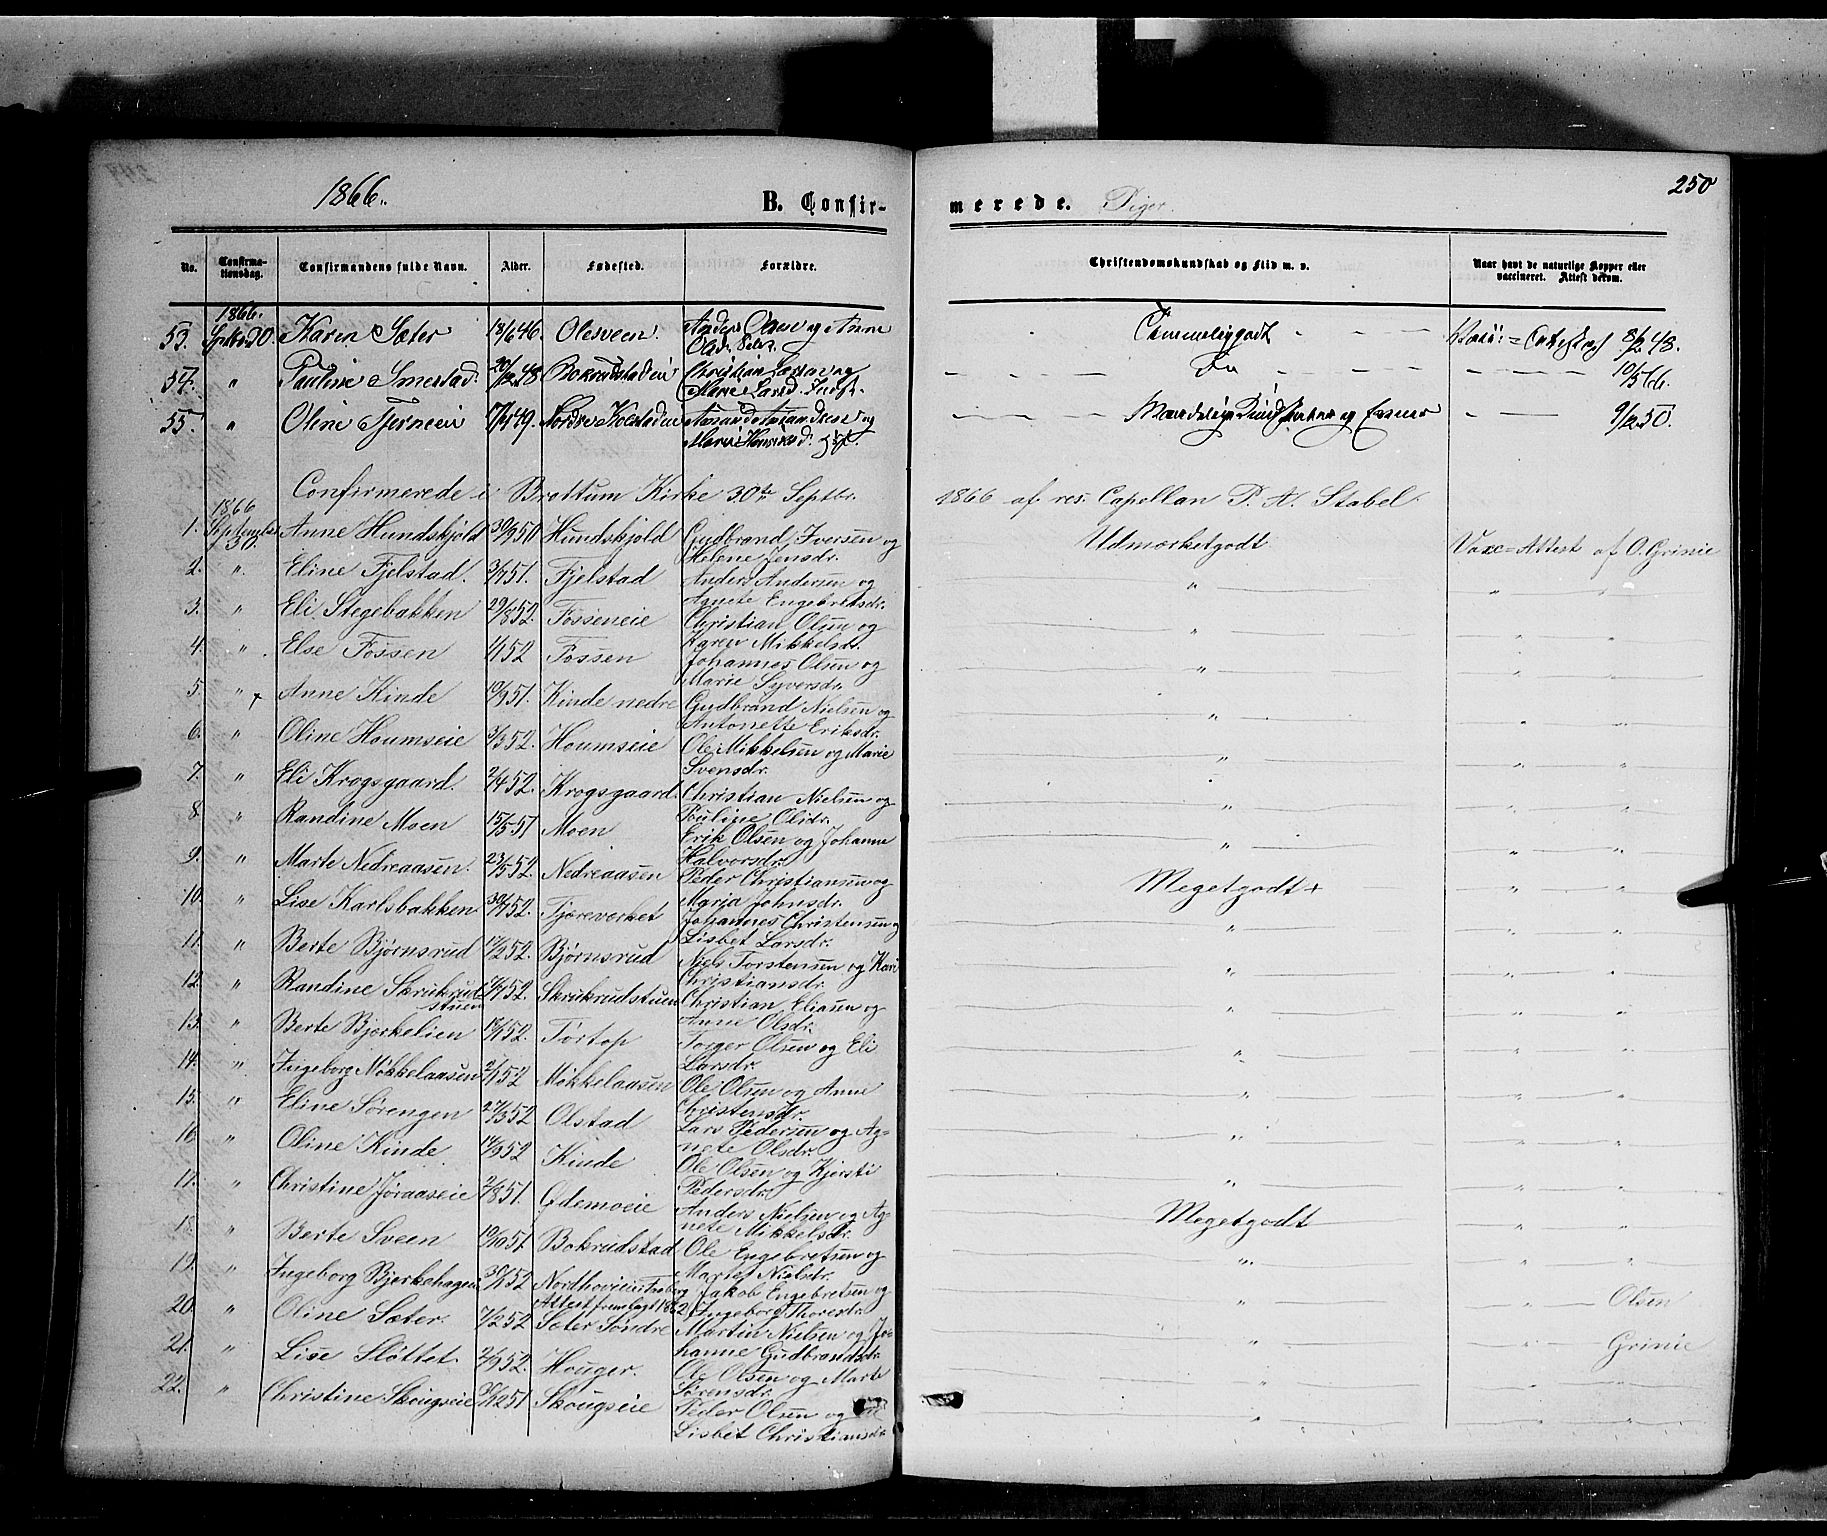 250
1866.
B. Confir-
merede. Piger.
No.
Confirma-
tionsdag.
Confirmandens fulde Navn.
Alder.
Fødested.
Forældre.
Christendomskundskab og Flid m. v.
Naar havt de naturlige Kopper eller
vaccineret. Attest derom.
1866.
53. Septbr 30. Karen Sæter 18/6 46 Olesveen. Anders Olsen og Anne
Temmeliggodt 8/2 48.
54. " Pauline Smestad. 48 Bokrudstadeie Christian Larsen og
Marie Larsd.
Do 10/5 66.
55. " Oline Tjerneeie 49. Nordre Kolstadeie Amund Amundsen og
Marie
9/6 50.
Confirmerede i Brøttum Kirke 30te Septbr.
1866 af res. Capellan P. A. Stabel.
1866
1. September 30. Anne Hundskjold 30/9 50 Hundskjold Gudbrand Iversen og
Helene Jensdr.
Udmærketgodt Vacc=Attest af O. Grinie
2. " Eline Fjelstad. 3/7 51. Fjelstad Anders Andersen og
Agnete Engebretsdr.
" " "
3. " Eli Stegebakken 29/8 52. Fosseneie Christian Olsen og
Karen Mikkelsdr.
" " "
4. " Else Fossen 4/1 52 Fossen Johannes Olsen og
Marie Syversdr.
" " "
5. " Anne Kinde 19/9 51. Kinde nedre Gudbrand Nielsen og
Antonette Eriksdr.
" " "
6. " Oline Houmseie 3/3 52. Houmseie Ole Mikkelsen og Marie
Svensdr.
" " "
7. " Eli Krogsgaard. 2/4 52. Krogsgaard. Christian Nielsen og
Pauline Olidr.
" " "
8. " Randine Moen 15/5 51 Moen Erik Olsen og Johanne
Halvorsdr.
" " "
9. " Marte Nedreaasen. 23/5 52. Nedreaasen Peder Christiansen og
Maria Johnsdr.
Megetgodt+ " "
10. " Lise Karlsbakken 30/7 52. Tjæreværket Johannes Christensen og
Lisbet Larsdr.
" " "
11. " Berte Bjørnsrud 17/2 52. Bjørnsrud Niels Torstensen og Kari
Christiansdr.
" " "
12. " Randine Skrukrud
stuen 52. Skrukrudstuen Christian Eliasen og
Anne Olsdr.
" " "
13. " Berte Bjørkelien 52. Tørtop Torger Olsen og Eli
Larsdr.
" " "
14. " Ingeborg Møkkelaasen 2/1 52 Møkkelaasen Ole Olsen og Anne
Christensdr.
" " "
15. " Eline Sørengen 27/3 52 Olstad Lars Pedersen og Ag=
nete Olsdr.
" " "
16. " Oline Kinde 14/3 52 Kinde Ole Olsen og Kjersti
Pedersdr.
" " "
17. " Christine Jøraaseie 2/8 51. Ødemoeie Anders Nielsen og Ag=
nete Mikkelsdr.
Megetgodt " "
18. " Berte Sveen 19/10 51 Bokrudstad Ole Engebretsen og
Marie Nielsdr.
" " "
19. " Ingeborg Bjerkehagen 52 Nordhovieie
Attest fremlagt 1862 Jakob Engebretsen og
Ingeborg Thoresdr.
" " Olsen
20. " Oline Sæter. 7/2 52 Sæter Søndre Martin Nielsen og Jo=
hanne Gudbrandsdr.
" " Grinie
21. " Lise Sløttet. 2/9 52. Houger. Ole Olsen og Marte
Sørensdr.
" " "
22. " Christine Skougseie 51 Skougseie Peder Olsen og
Lisbet Christiansdr.
" " "